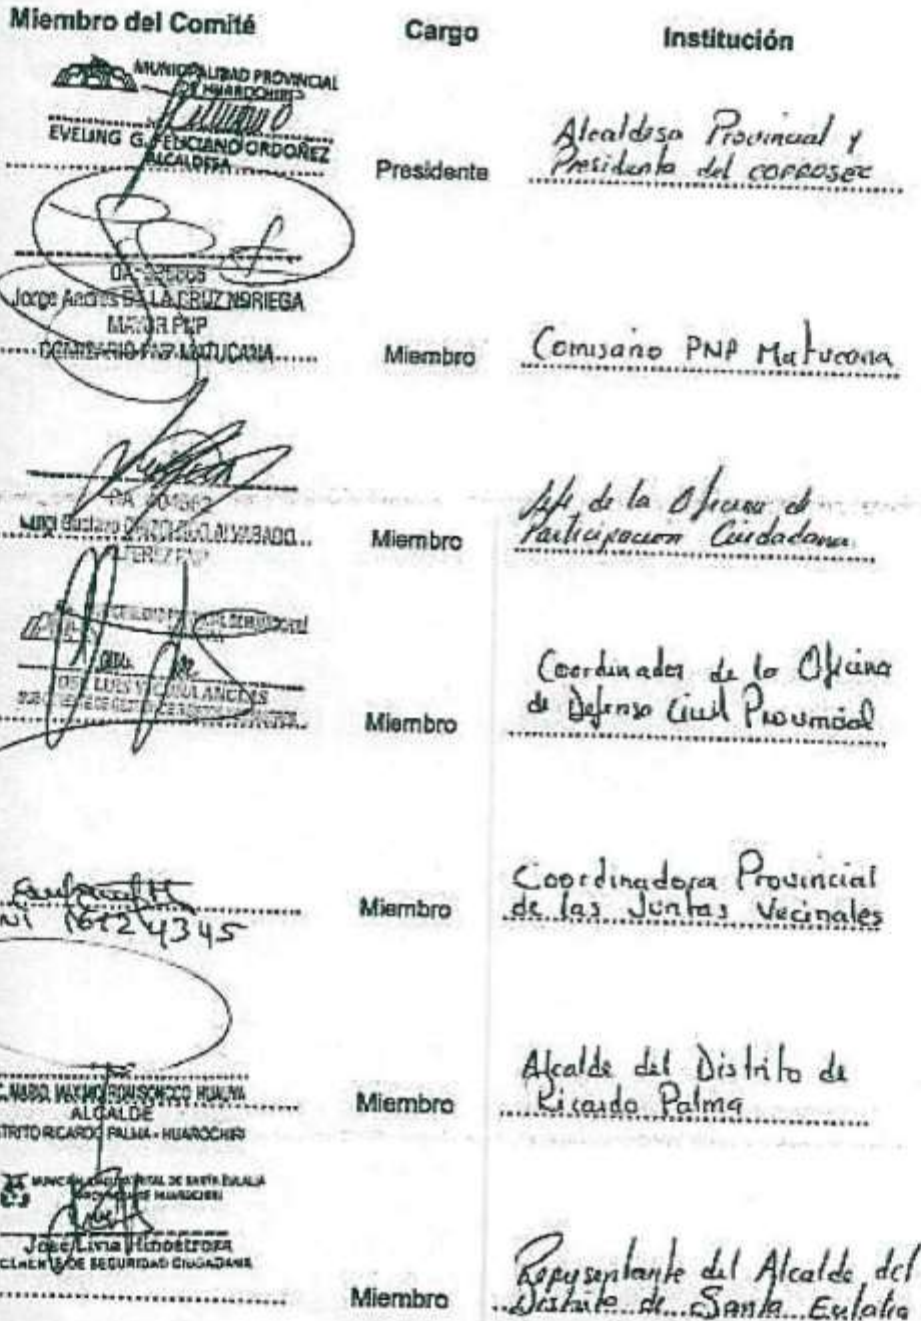 Miembro del Comité Cargo Institución
MUNICIPALIDAD PROVINCIAL
DE HUAROCHIRI
EVELING G. FELICIANO ORDOÑEZ
ALCALDESA
Presidente
Alcaldesa Provincial y
Presidenta del COPROSEC
Jorge Andres DE LA CRUZ NORIEGA
MAYOR PNP
COMISARIO PNP MATUCANA
Miembro
Comisario PNP Matucana
ALVARADO
ALFEREZ PNP
Miembro
Jefe de la Oficina de
Participacion Ciudadana
LUIS ANGELES
Miembro
Coordinador de la Oficina
de Defensa Civil Provincial
Miembro
Coordinadora Provincial
de las Juntas Vecinales
ALCALDE
TRITO RICARDO PALMA - HUAROCHIRI
Miembro
Alcalde del Distrito de
Ricardo Palma
DE SANTA EULALIA
PROVINCIA DE HUAROCHIRI
Jose Livia Hinostroza
DE SEGURIDAD CIUDADANA
Miembro
Representante del Alcalde del
Distrito de Santa Eulalia